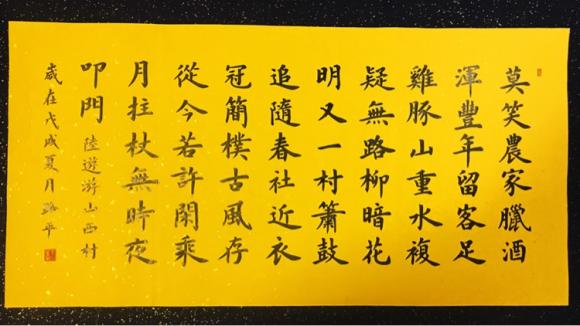 莫笑農家臘酒
渾豐年留客足
雞豚山重水複
疑無路柳暗花
明又一村簫鼓
追隨春社近衣
冠簡樸古風存
從今若許閑乘
月拄杖無時夜
叩門 陸遊游山西村
歲在戊戌夏月路平